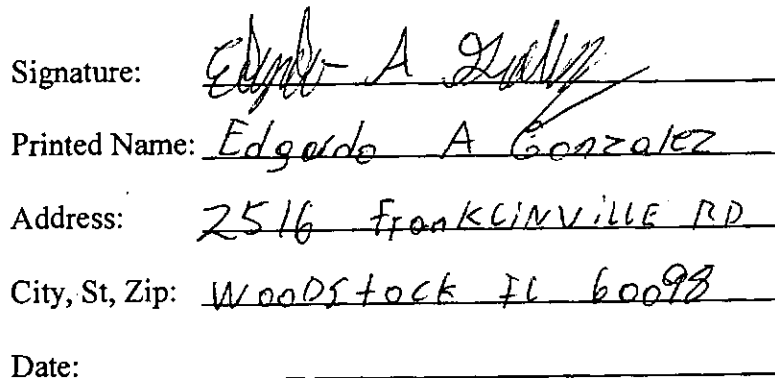 Signature: A
Printed Name: Edgardo A Gonzalez
Address: 2516 franKLiNViLLE RD
City, St, Zip: WooDstock IL 60098
Date: